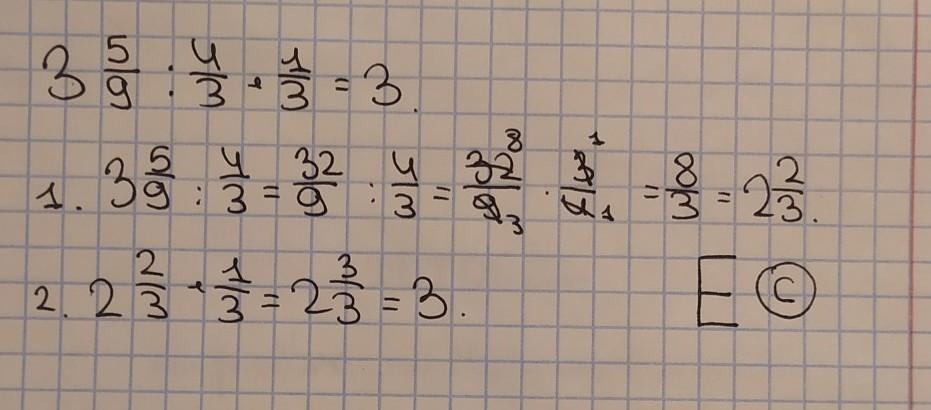 3 5/9 : 4/3 + 1/3 = 3.
1. 3 5/9 : 4/3 = 32/9 : 4/3 = 32 8/9 3 · 3 1/4 1 = 8/3 = 2 2/3.
2. 2 2/3 + 1/3 = 2 3/3 = 3.
E ©